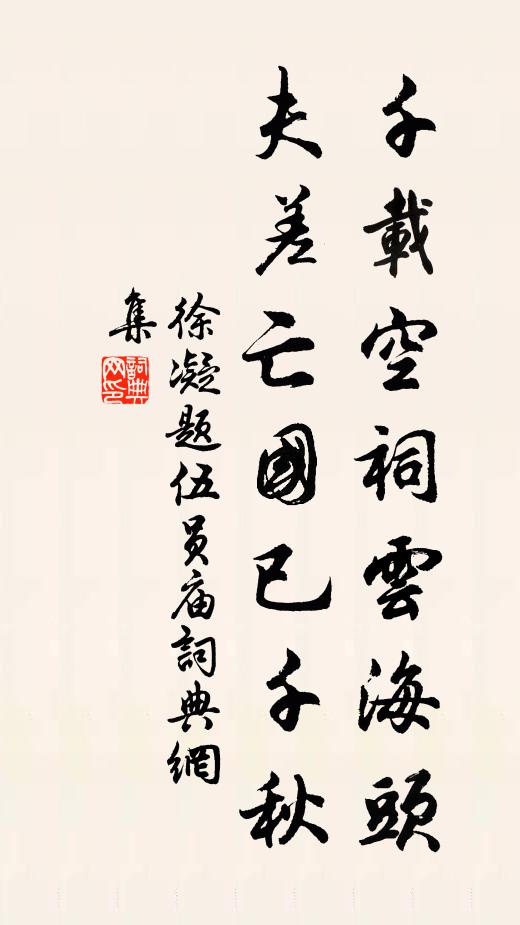 千載空祠雲海頭
夫差亡國已千秋
徐凝題伍員庙詞典網
集
詞典
网印